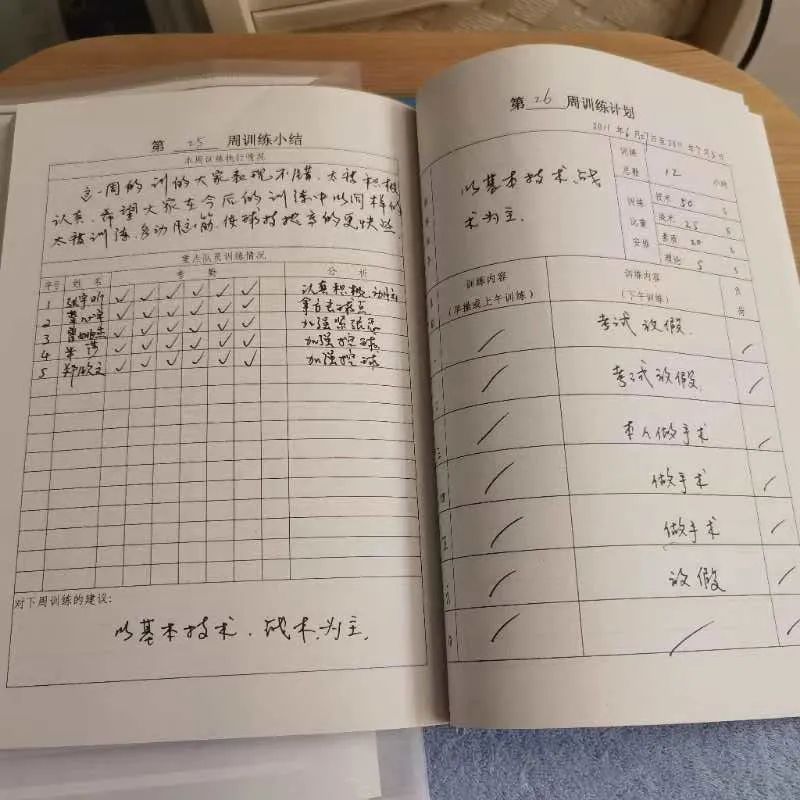 第 25 周训练小结
本周训练执行情况
这一周的训的大家表现不错、太被积极
认真、希望大家在今后的训练中以同样的
太被训练、多动脑筋、使球技提高的更快些.
重点队员训练情况
序号 姓 名 考 勤 分 析
1 ✓ ✓ ✓ ✓ ✓ ✓ 认真积极
2 ✓ ✓ ✓ ✓ ✓ ✓
3 ✓ ✓ ✓ ✓ ✓ ✓ 加强
4 ✓ ✓ ✓ ✓ ✓ ✓ 加强控球
5 郑欣文 ✓ ✓ ✓ ✓ ✓ ✓ 加强控球
对下周训练的建议:
以基本技术、战术为主.
第 26 周训练计划
2011 年 6 月 27 日至 2011 年 7 月 3 日
以基本技术、战
术为主.
训练
总数 12 小时
训练 技术 50 %
比重 战术 25 %
安排 素质 20 %
理论 5 %
训练内容
(早操或上午训练)
训练内容
(下午训练)
考试放假.
考试放假.
三 本人做手术
四 做手术
五 做手术
六 放假
日